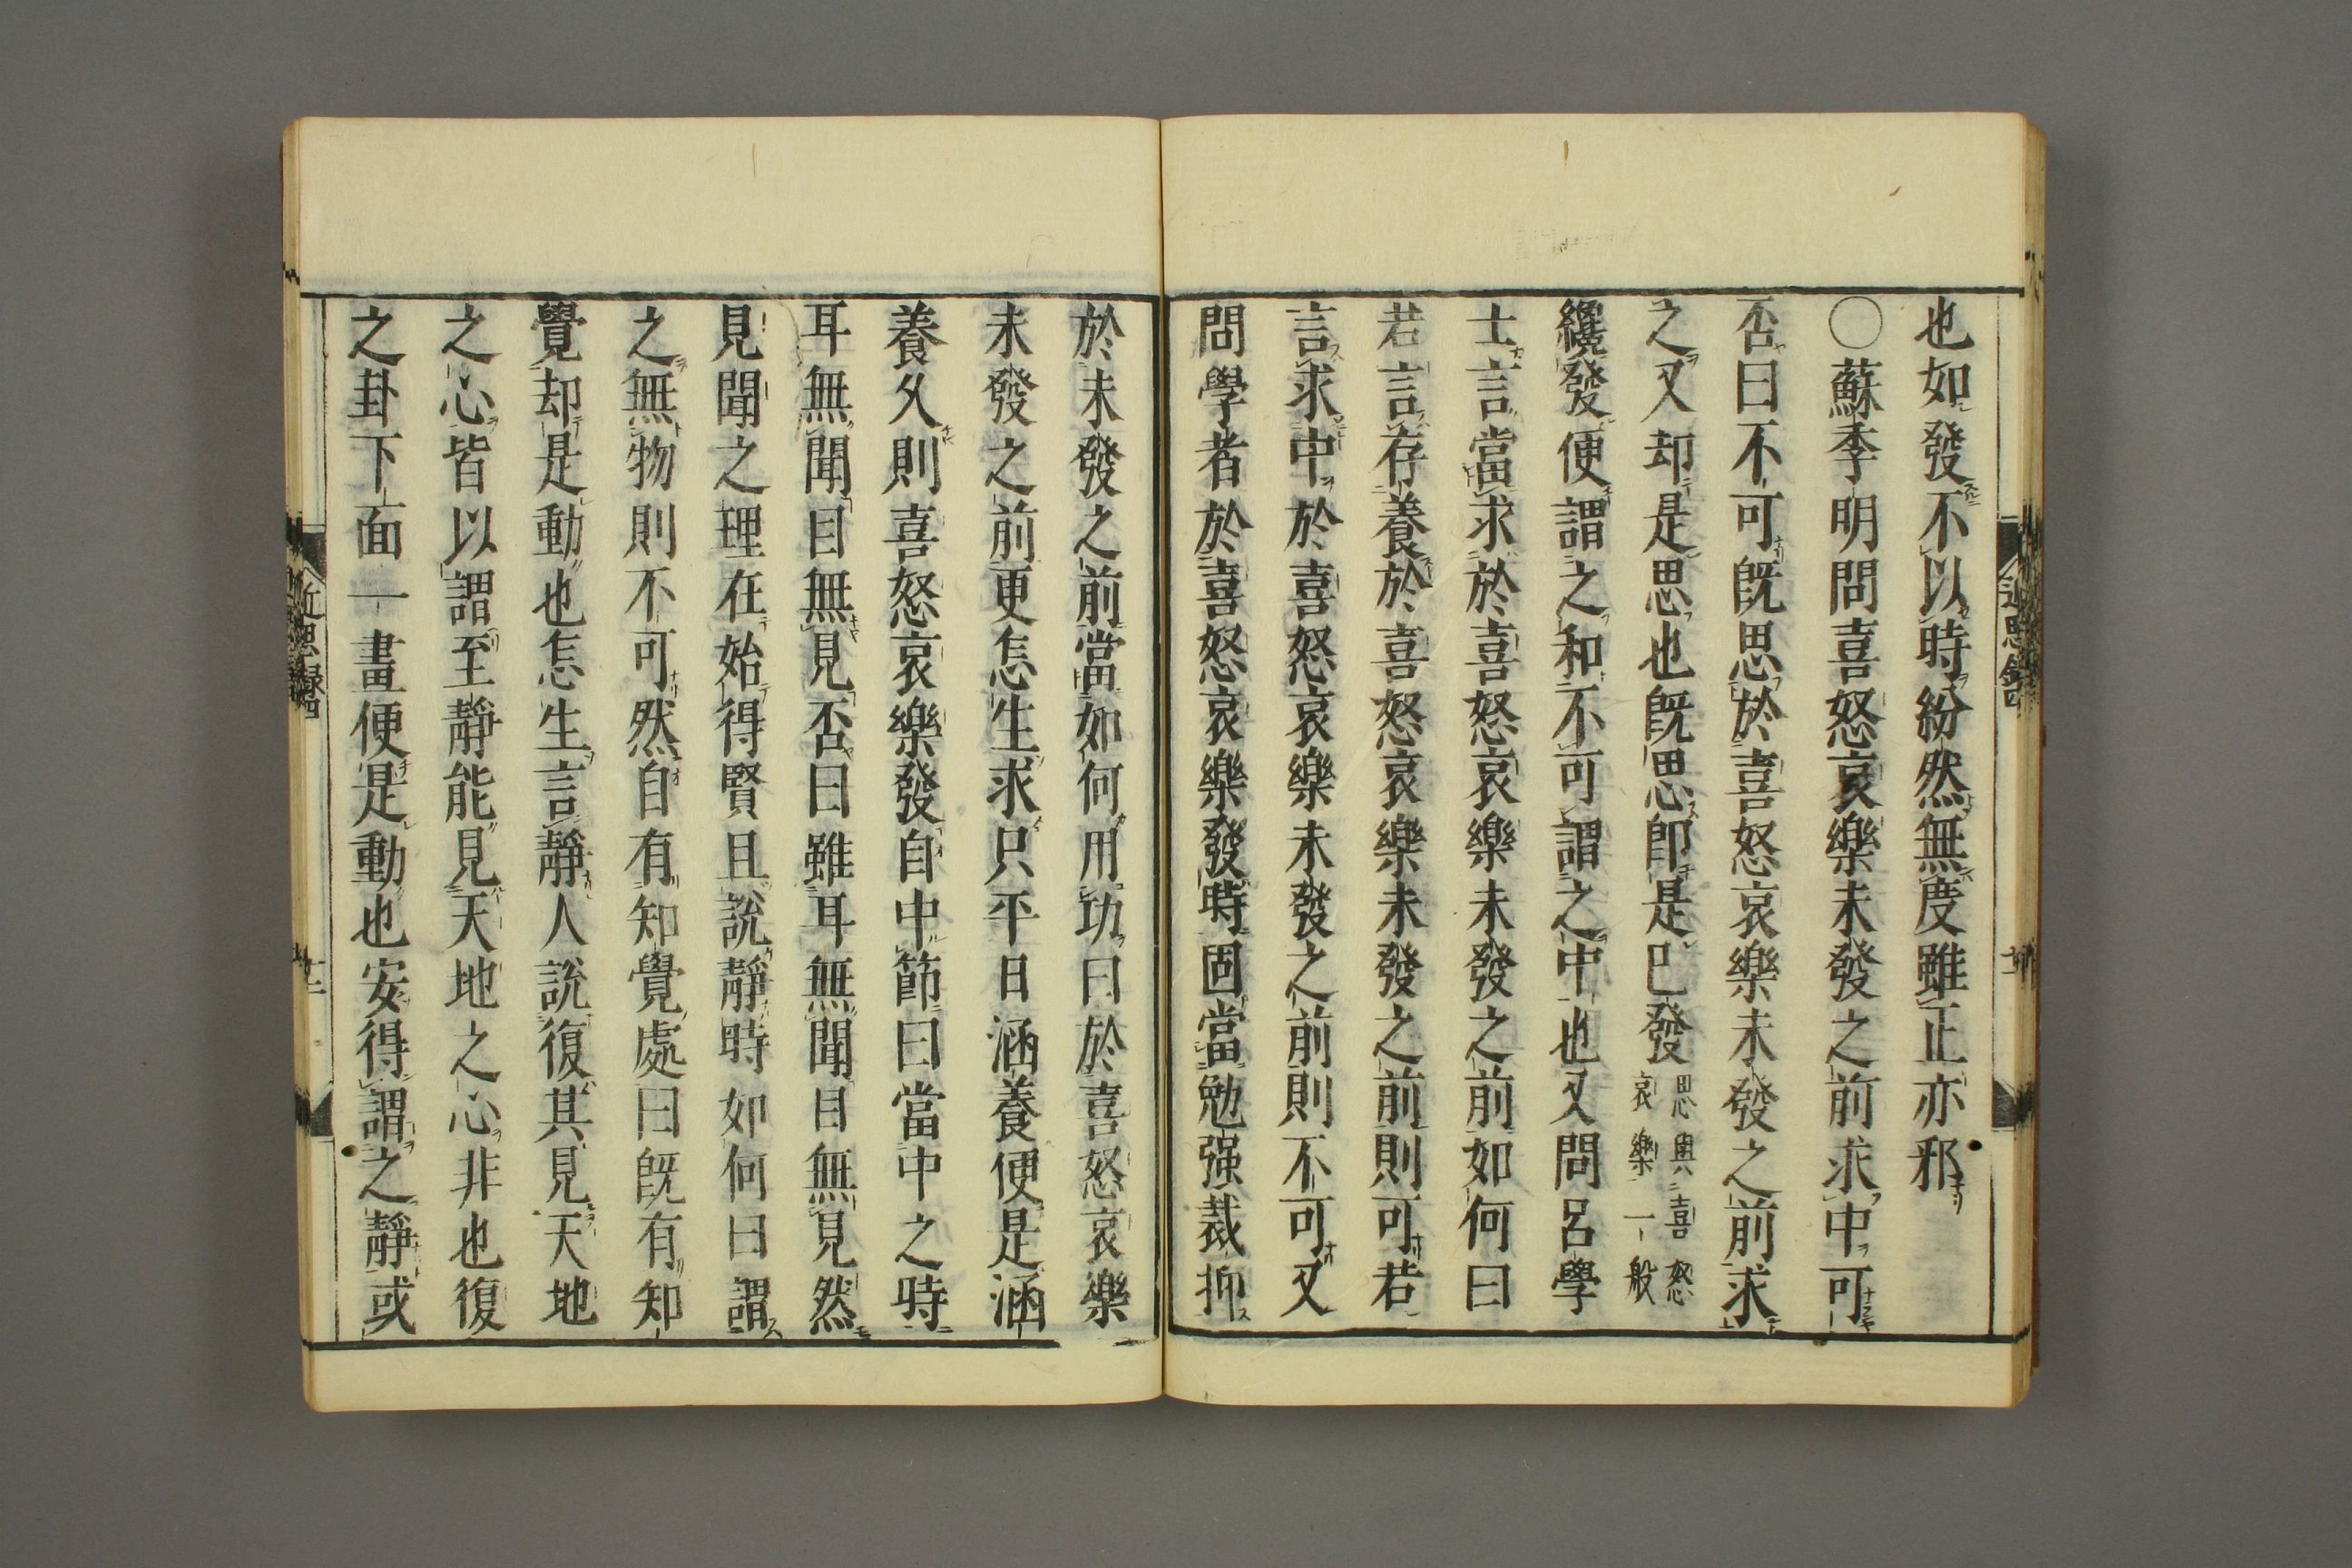 也如發不以時紛然無度雖正亦邪
〇蘇季明問喜怒哀樂未發之前求中可
否曰不可既思於喜怒哀樂未發之前求
之又却是思也既思即是已發思與喜怒哀樂一般
纔發便謂之和不可謂之中也又問呂學
士言當求於喜怒哀樂未發之前如何曰
若言存養於喜怒哀樂未發之前則可若
言求中於喜怒哀樂未發之前則不可又
問學者於喜怒哀樂發時固當勉强裁抑
於未發之前當如何用功曰於喜怒哀樂
未發之前更怎生求只平日涵養便是涵
養久則喜怒哀樂發自中節曰當中之時
耳無聞目無見否曰雖耳無聞目無見然
見聞之理在始得賢且說靜時如何曰謂
之無物則不可然自有知覺處曰既有知
覺却是動也怎生言靜人說復其見天地
之心皆以謂至靜能見天地之心非也復
之卦下面一畫便是動也安得謂之靜或
近思録四
十二